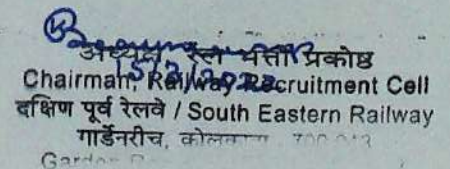 अध्यक्ष, रेल भर्ती प्रकोष्ठ
Chairman, Railway Recruitment Cell
दक्षिण पूर्व रेलवे / South Eastern Railway
गार्डेनरीच, कोलकाता
Garden